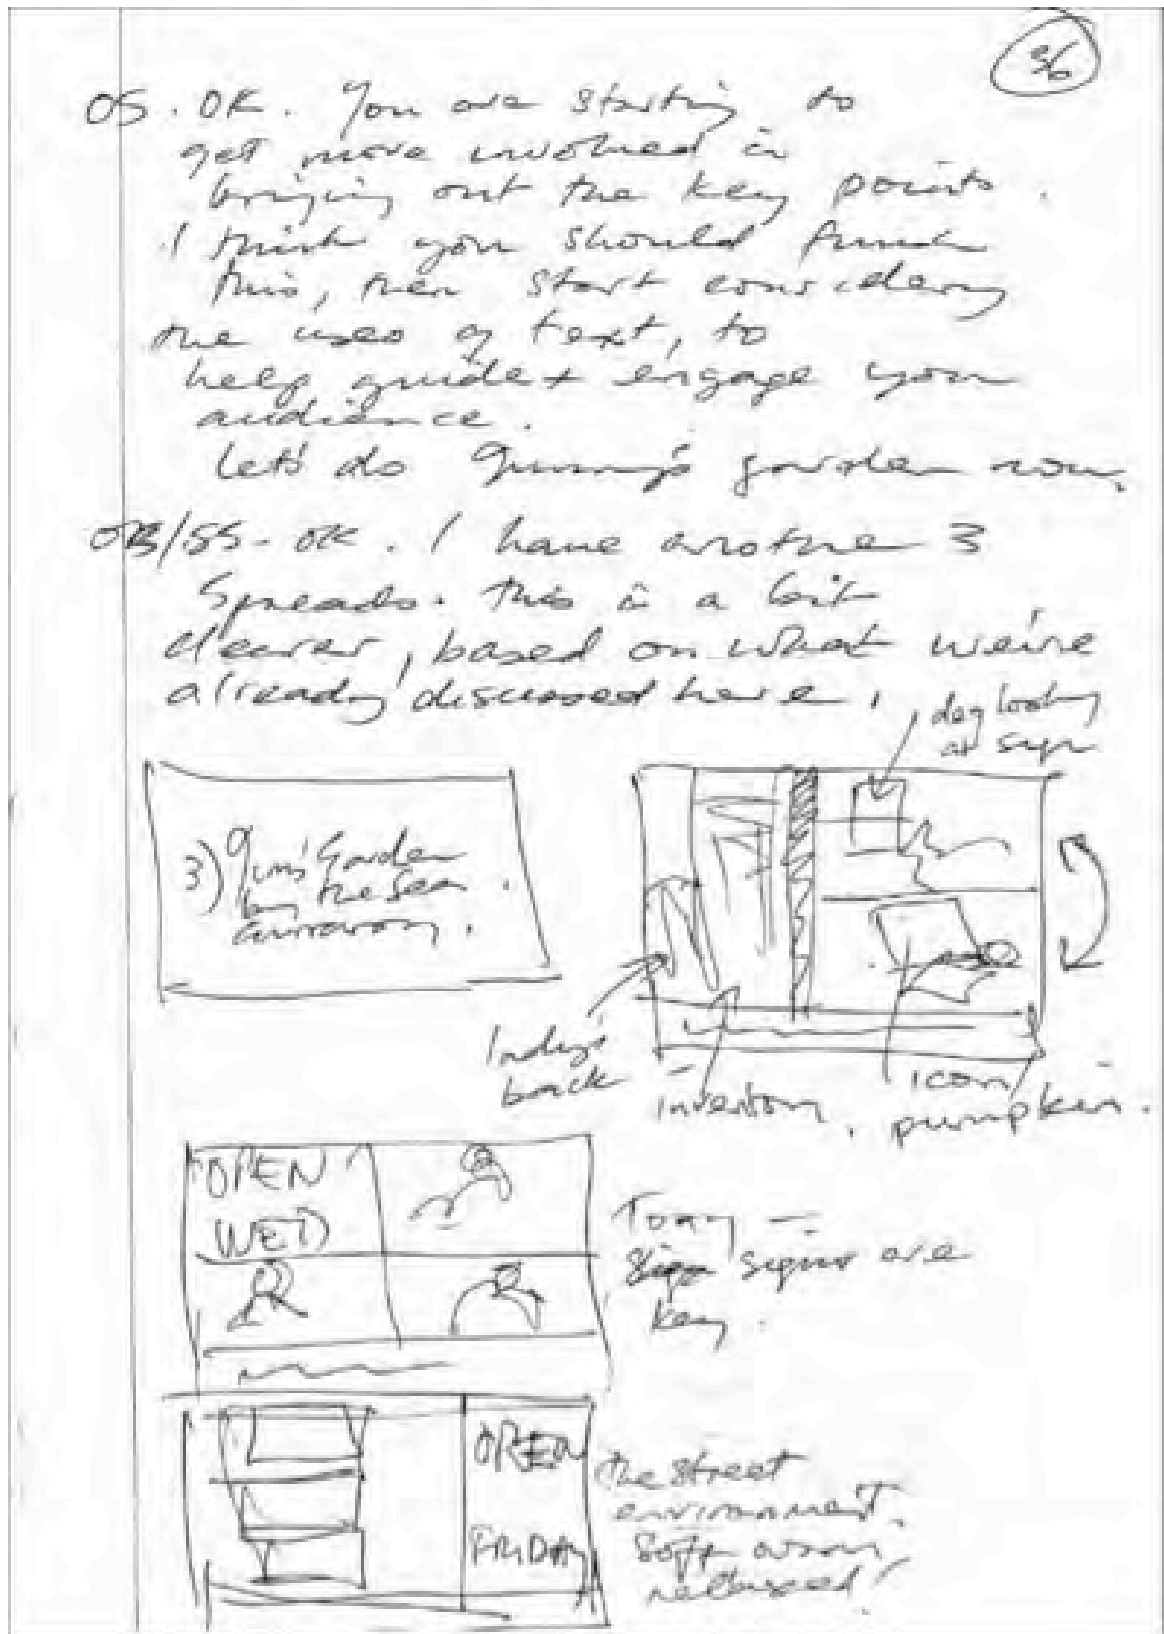 36
OS. OK. You are starting to
get more involved in
bringing out the key points.
I think you should finish
this, then start considering
the uses of text, to
help guide + engage your
audience.
Let's do garden now.
OB/SS - OK. I have another 3
Spreads. This is a bit
clearer, based on what we've
already discussed here.
dog looking
at sign
3) Garden
by the Sea
back
inventory.
icon/
pumpkin.
OPEN
WED
Today –
signs are
key.
OPEN
FRIDAY
the street
environment.